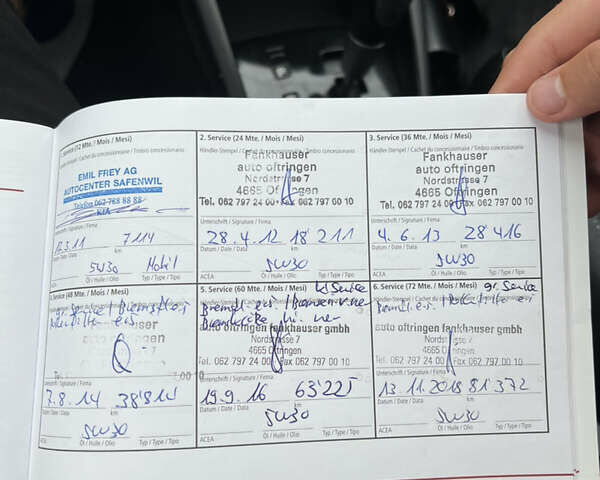 1. Service (12 Mte. / Mois / Mesi)
Händler-Stempel / Cachet du concessionnaire / Timbro concessionario
EMIL FREY AG
AUTOCENTER SAFENWIL
Telefon 062 788 88 88
KIA
Unterschrift / Signature / Firma
7114
Datum / Date / Data km
5W30 Mobil
ACEA Öl / Huile / Olio Typ / Type / Tipo
2. Service (24 Mte. / Mois / Mesi)
Händler-Stempel / Cachet du concessionnaire / Timbro concessionario
Fankhauser
auto oftringen
Nordstrasse 7
4665 Oftringen
Tel. 062 797 24 00 Fax 062 797 00 10
Unterschrift / Signature / Firma
28.4.12 18'211
Datum / Date / Data km
5W30
ACEA Öl / Huile / Olio Typ / Type / Tipo
3. Service (36 Mte. / Mois / Mesi)
Händler-Stempel / Cachet du concessionnaire / Timbro concessionario
Fankhauser
auto oftringen
Nordstrasse 7
4665 Oftringen
Tel. 062 797 24 00 Fax 062 797 00 10
Unterschrift / Signature / Firma
4.6.13 28'416
Datum / Date / Data km
5W30
ACEA Öl / Huile / Olio Typ / Type / Tipo
4. Service (48 Mte. / Mois / Mesi)
gr. Service
auser
oftringen
Unterschrift / Signature / Firma
7.8.14
Datum / Date / Data km
5W30
ACEA Öl / Huile / Olio Typ / Type / Tipo
5. Service (60 Mte. / Mois / Mesi) kl Service
auto oftringen fankhauser gmbh
Nordstrasse 7
4665 Oftringen
Tel. 062 797 24 00 Fax 062 797 00 10
Unterschrift / Signature / Firma
19.9.16 63'225
Datum / Date / Data km
5W30
ACEA Öl / Huile / Olio Typ / Type / Tipo
6. Service (72 Mte. / Mois / Mesi) gr. Service
auto oftringen fankhauser gmbh
Nordstrasse 7
4665 Oftringen
Tel. 062 797 24 00 Fax 062 797 00 10
Unterschrift / Signature / Firma
13.11.2018 81'372
Datum / Date / Data km
5W30
ACEA Öl / Huile / Olio Typ / Type / Tipo